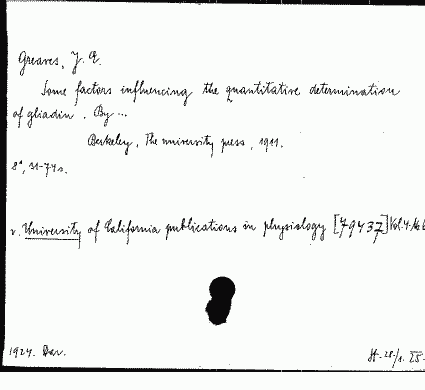 Greaves, J. E.
Some factors influencing the quantitative determination
of gliadin. By ...
Berkeley, The university press, 1911.
8°, 31-74 s.
v. University of California publications in physiology [79437] Vol. 4. No 6
1924. Dar.